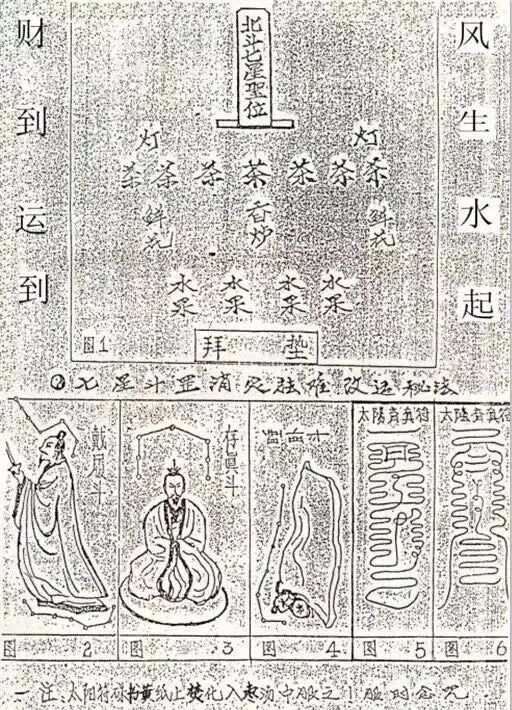 财到运到
风生水起
北斗七星聖位
灯 灯
茶 茶 茶 茶 茶 茶 茶
鲜花 香炉 鲜花
水果 水果 水果 水果
拜 垫
图1
七星斗罡消灾难改运秘法
戴履斗
图 2
存眞斗
图 3
图 4
太陽真符
图 5
太陰真符
图 6
注、太阳符黄纸上焚化入枣汤中服之！服时念咒